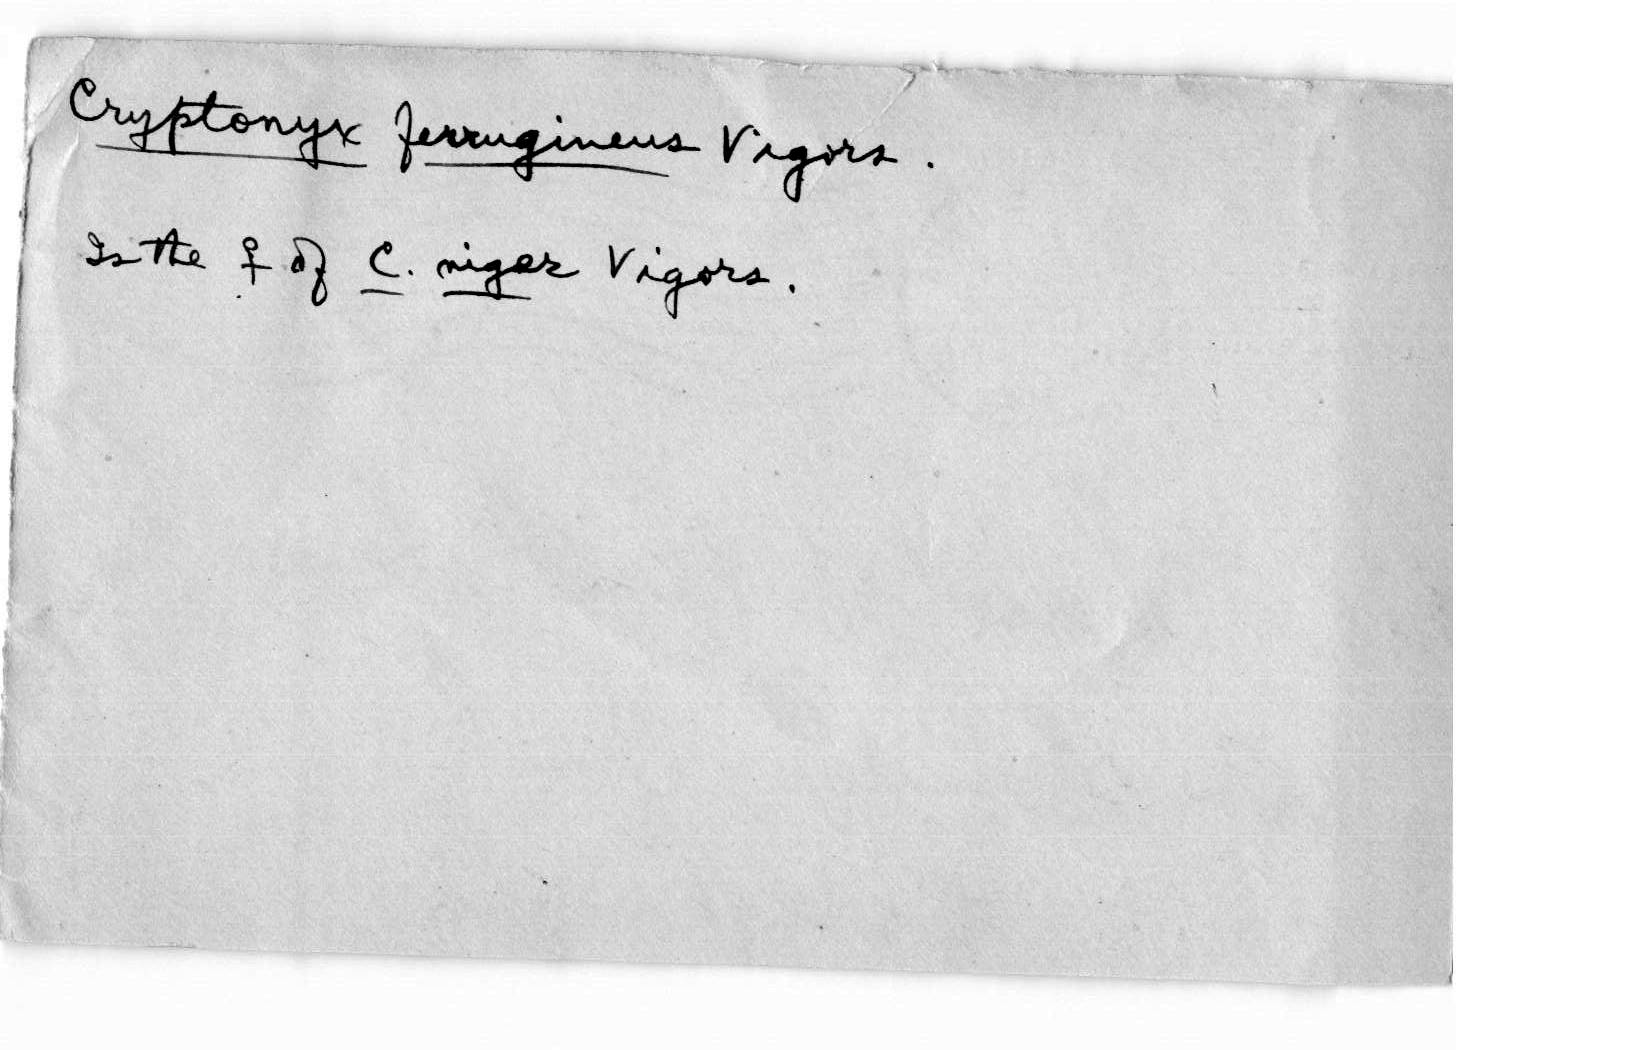 Cryptonyx ferrugineus Vigors.
Is the ♀ of C. niger Vigors.